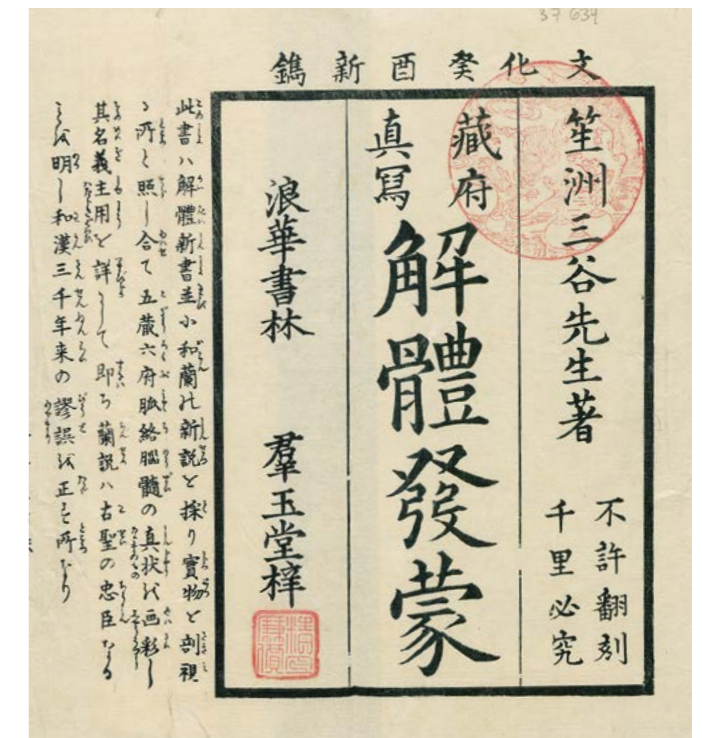 37 634
文化癸酉新鐫
笙洲三谷先生著
不許翻刻
千里必究
藏府
真寫
解體發蒙
浪華書林 羣玉堂梓
此書ハ解體新書並小和蘭の新説を採り實物を剖視
し所と照し合て五蔵六府脈絡腦髓の真状を画彩し
其名義主用を詳にして即ち蘭説ハ古聖の忠臣なる
を明し和漢三千年来の謬誤を正す所なり